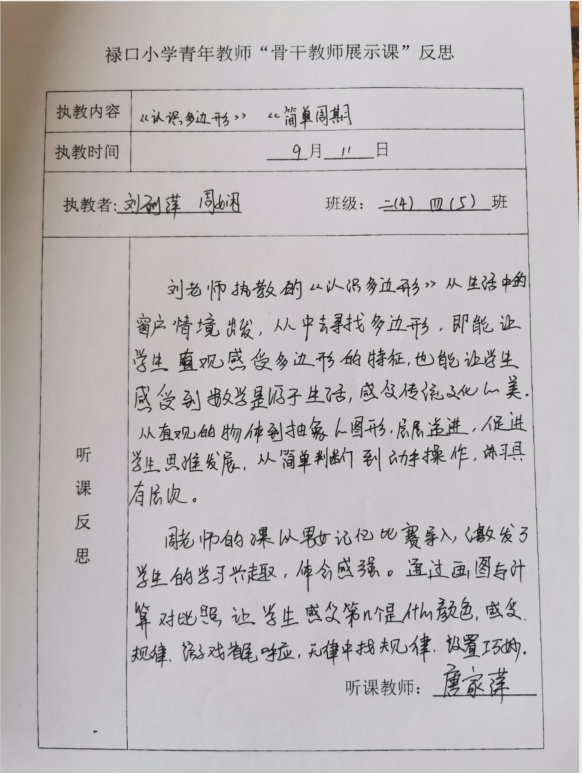 禄口小学青年教师“骨干教师展示课”反思
执教内容 《认识多边形》 《简单周期》
执教时间 9月11日
执教者: 刘 萍 周 班级: 二(4) 四(5) 班
刘老师执教的《认识多边形》从生活中的
窗户情境出发，从中去寻找多边形，即能让
学生直观感受多边形的特征，也能让学生
感受到数学是源于生活，感受传统文化的美.
从直观的物体到抽象的图形，层层递进，促进
学生思维发展，从简单判断到动手操作，练习具
有层次。
听课反思
周老师的课以男女记忆比赛导入，激发了
学生的学习兴趣，体会感强。通过画图与计
算对比照 让学生感受第n个是什么颜色，感受
规律，游戏首尾呼应，无律中找规律，设置巧妙.
听课教师: 唐家萍